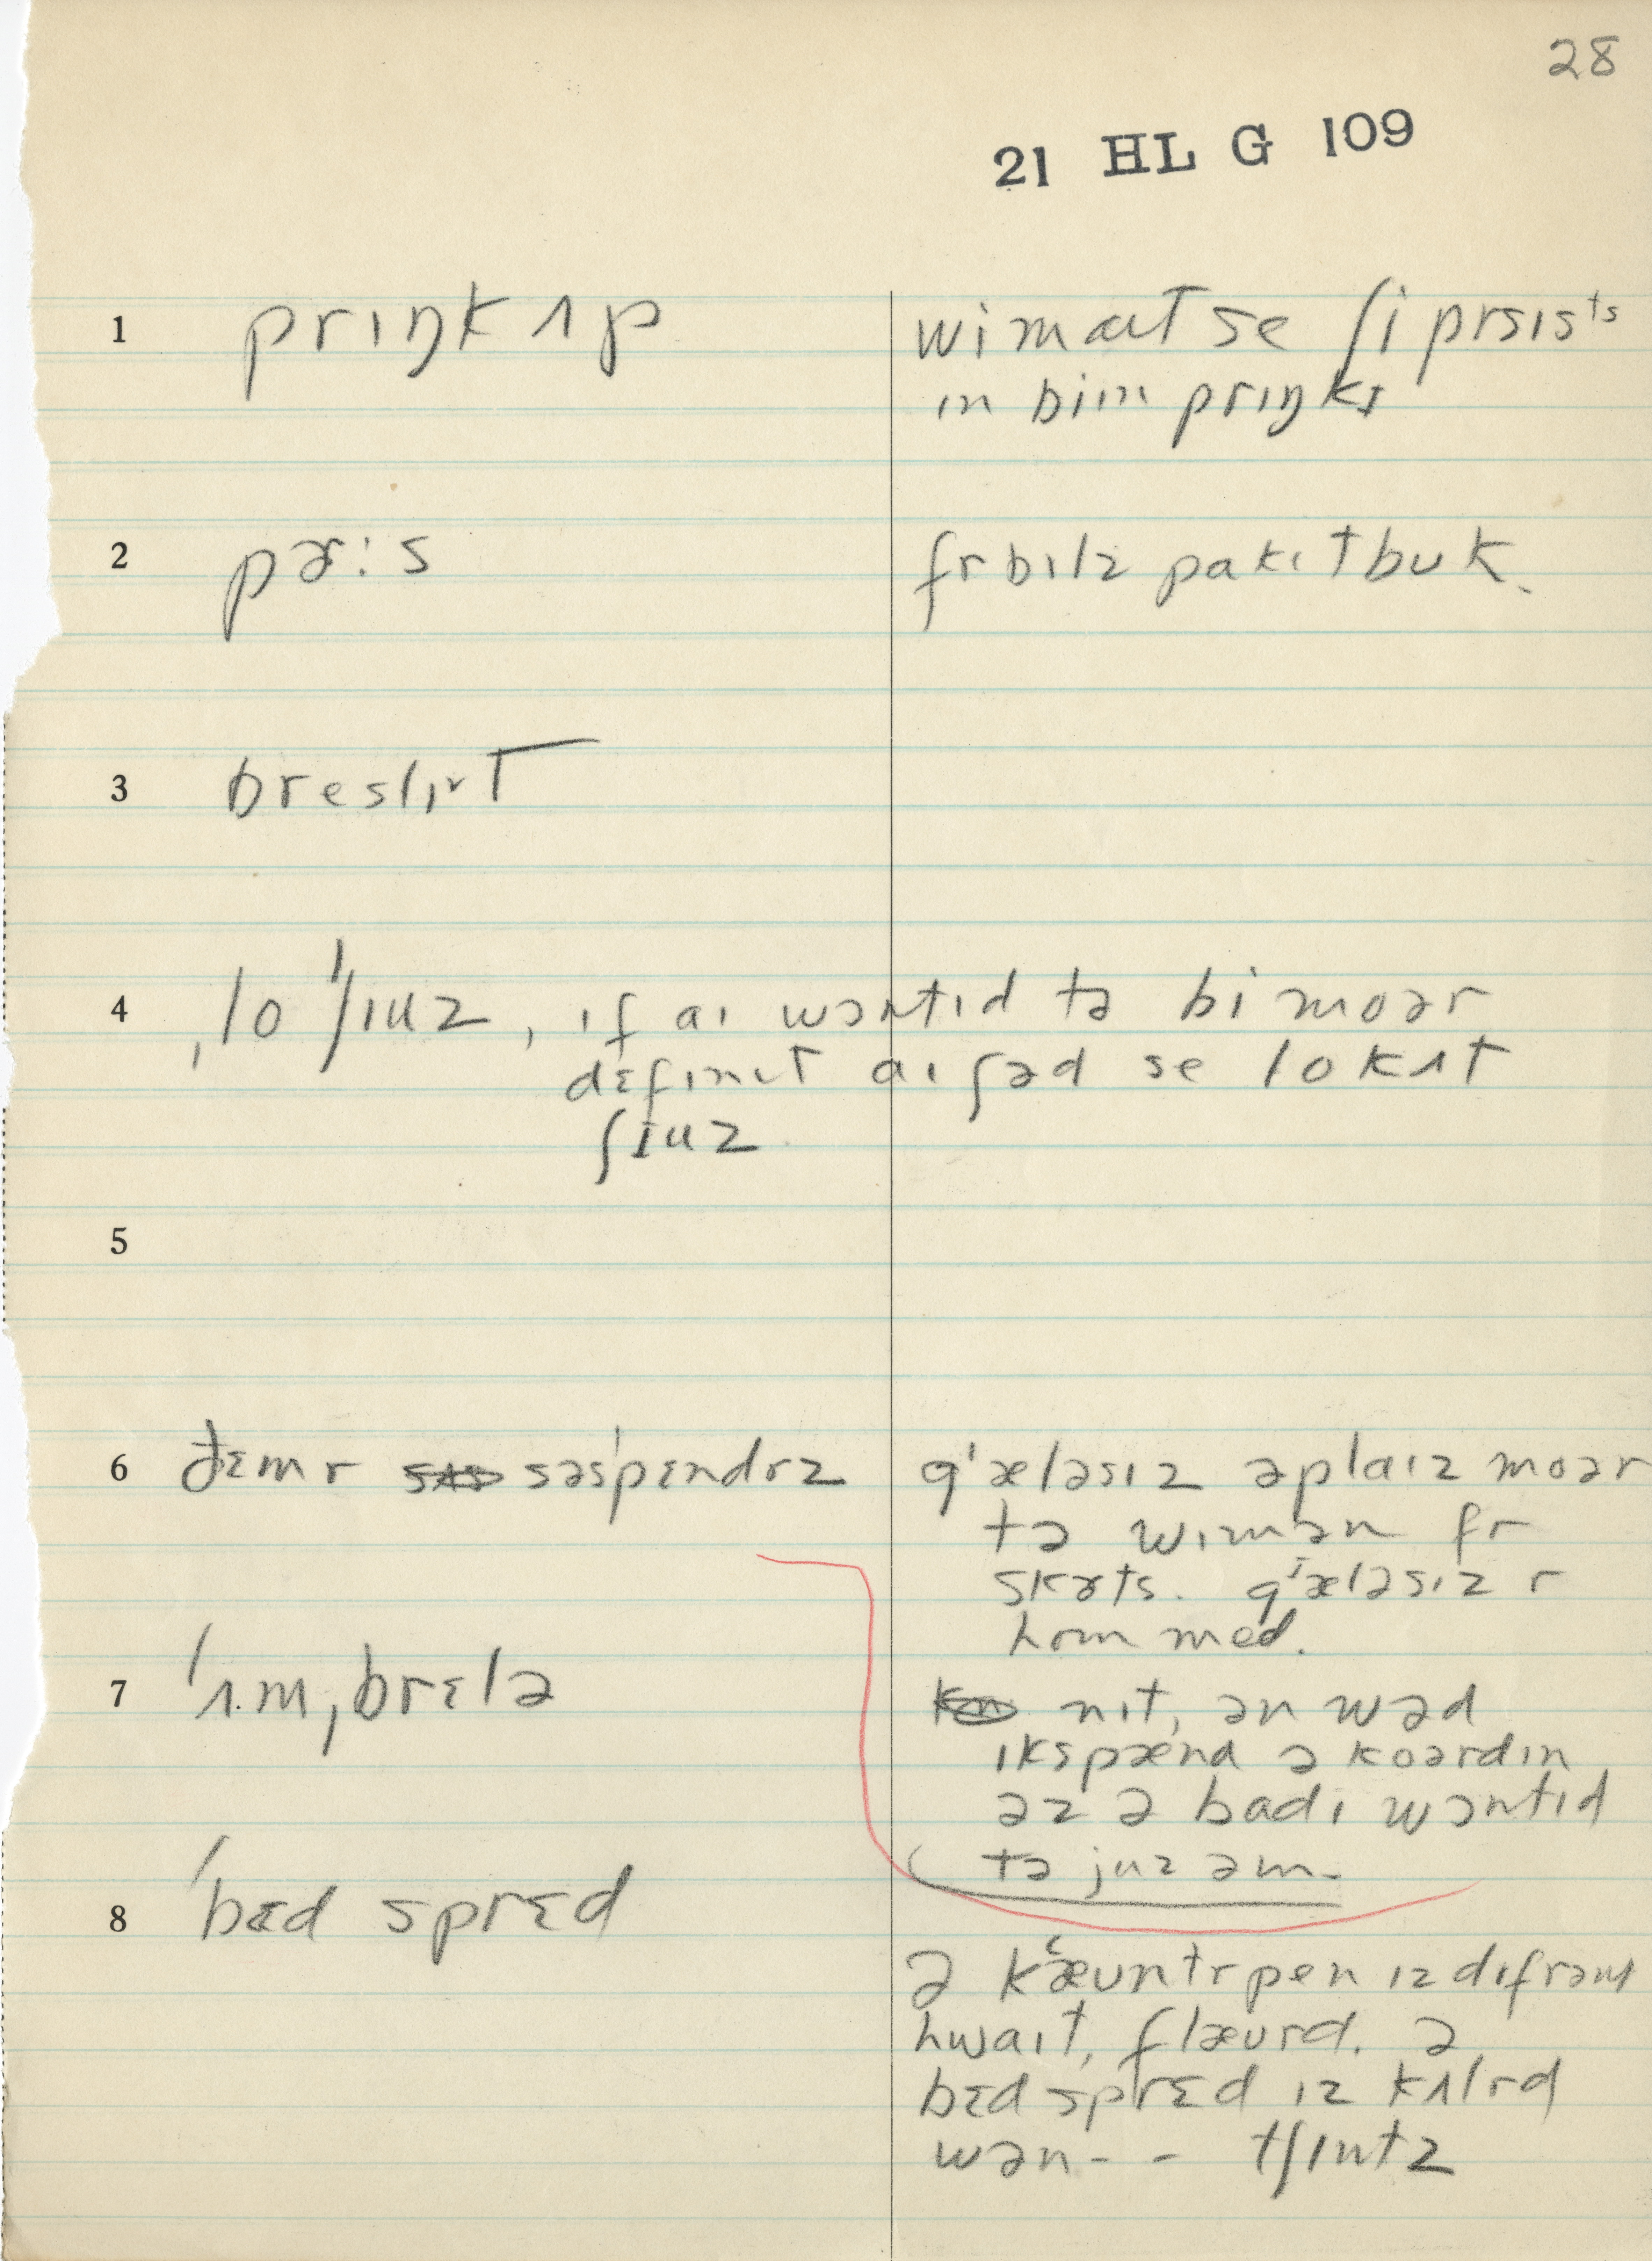 28
21 HL G 109
1 prɪŋk ʌp wi maɪt se ʃi prsɪsts
ɪn biɪn prɪŋkt
2 pɚ:s fr bɪlz pakɪtbuk.
3 breslɪt
4 ˌlo ˈʃɪuz, ɪf aɪ wɔntɪd tə bi moər
dɛfɪnɪt aɪ ʃəd se lo kʌt
ʃɪuz
5
6 səsˈpɛndrz gˈæləsɪz əplaɪz moər
tə wɪmən fr
skɚts. gˈæləsɪz r
hom med.
7 ˈʌmˌbrɛlə nɪt, ən wəd
ɪkspænd əkoərdɪn
əz ə badɪ wɔntɪd
tə juz əm.
8 ˈbɛd sprɛd
ə kˈæuntrpen ɪz dɪfrənt
hwaɪt, flæurd. ə
bɛd sprɛd ɪz kʌlrd
wən - - tʃɪntz